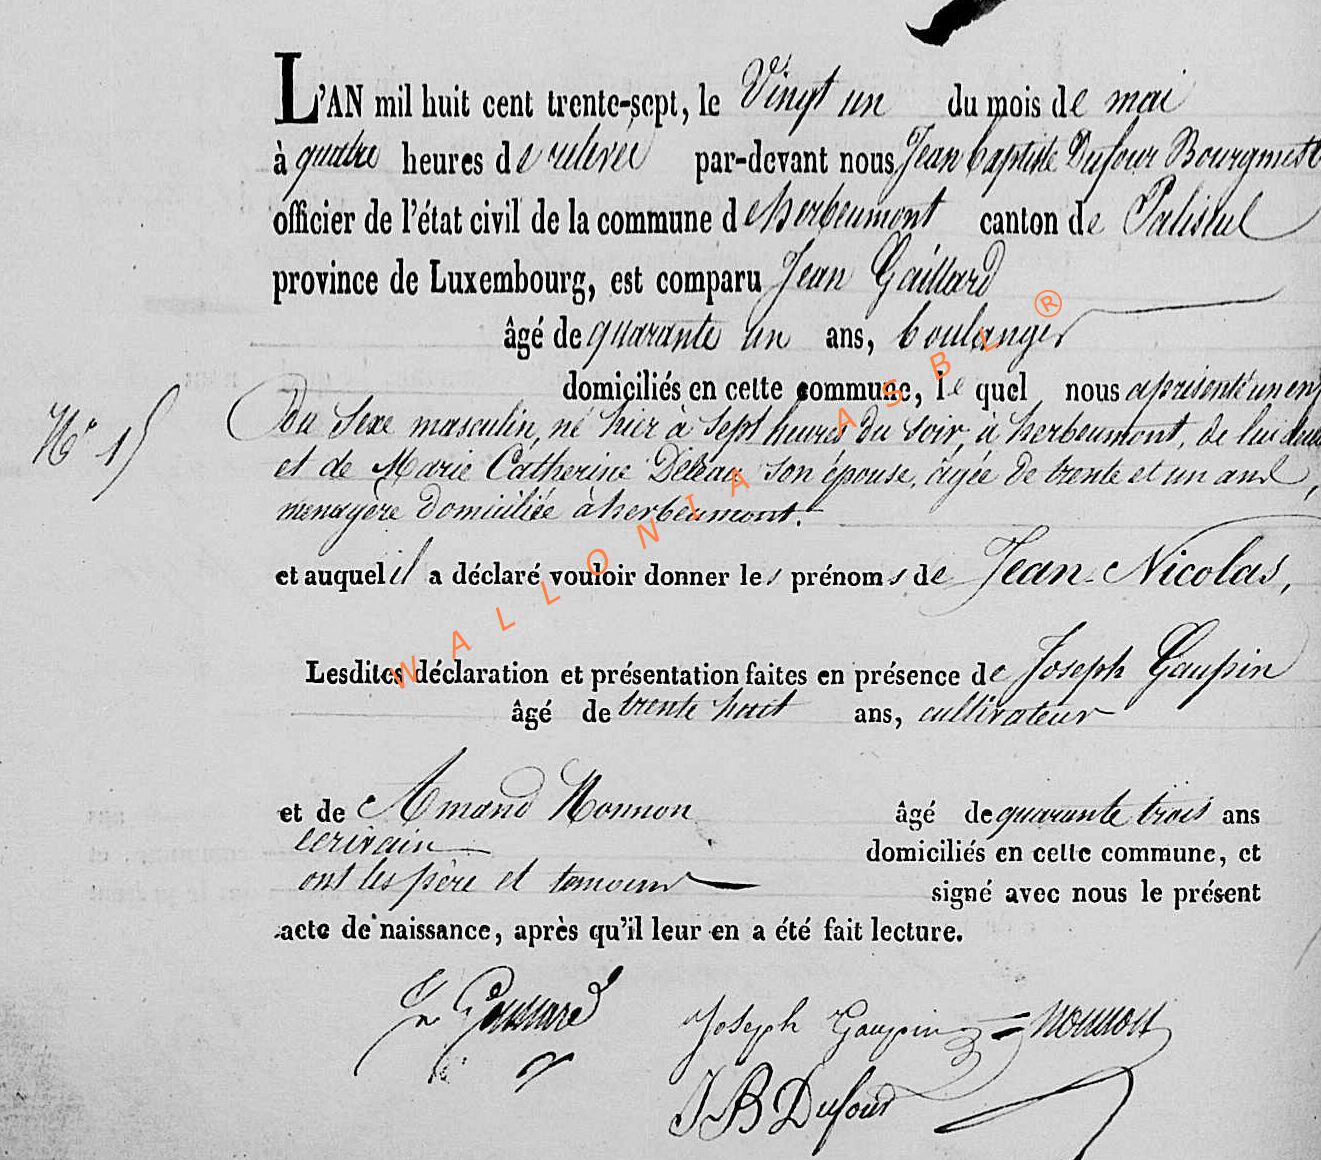 L'AN mil huit cent trente-sept, le Vingt un du mois de mai
à quatre heures de relevée par-devant nous Jean baptiste Dufour Bourgmest
officier de l'état civil de la commune d'herbeumont canton de Paliseul
province de Luxembourg, est comparu Jean Gaillard
âgé de quarante un ans, boulanger
domiciliés en cette commune, le quel nous a présenté un enf
N° 15 du sexe masculin, né hier à sept heures du soir, à herbeumont, de lui
et de Marie Catherine son épouse, âgée de trente et un ans,
ménagère domiciliée à herbeumont.
et auquel il a déclaré vouloir donner les prénoms de Jean-Nicolas,
Lesdites déclaration et présentation faites en présence de Joseph Gaupin
âgé de trente huit ans, cultivateur
et de Amand Nonnon âgé de quarante trois ans
écrivain
domiciliés en cette commune, et
ont les père et temoins signé avec nous le présent
acte de naissance, après qu'il leur en a été fait lecture.
Joseph Gaupin Nonnon
J B Dufour
WALLONIA ASBL ®